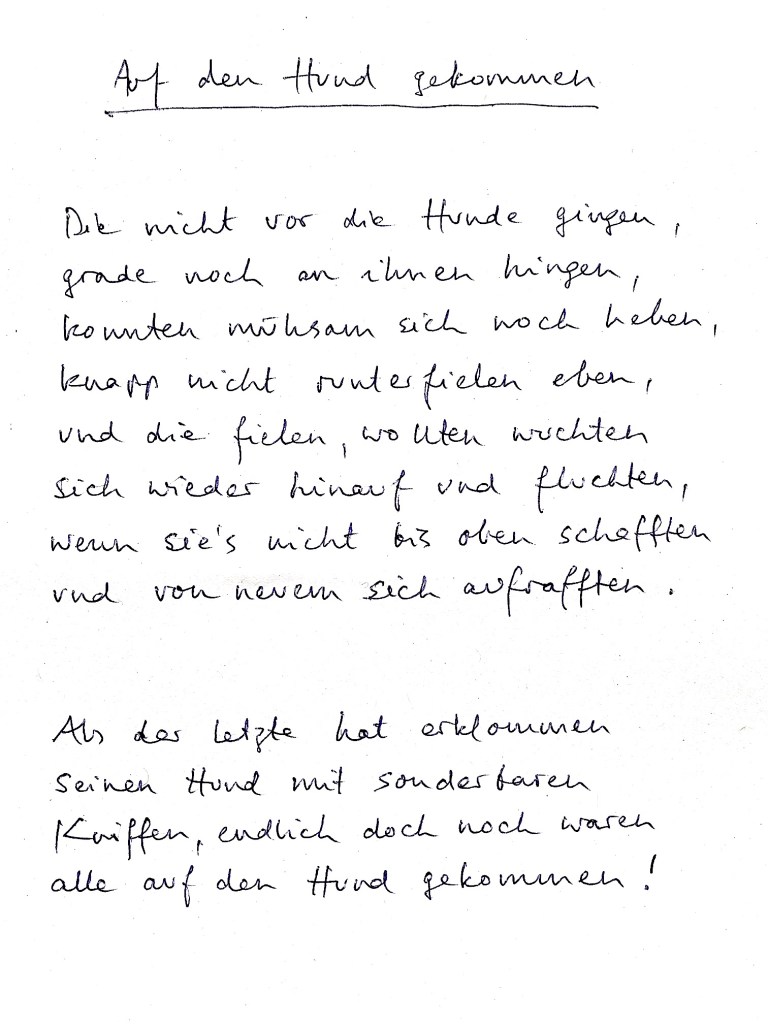 Auf den Hund gekommen
Die nicht vor die Hunde gingen,
grade noch an ihnen hingen,
konnten mühsam sich noch heben,
knapp nicht runterfielen eben,
und die fielen, wollten wuchten
sich wieder hinauf und fluchten,
wenn sie's nicht bis oben schafften
und von neuem sich aufrafften.
Als der letzte hat erklommen
seinen Hund mit sonderbaren
Kniffen, endlich doch noch waren
alle auf den Hund gekommen!